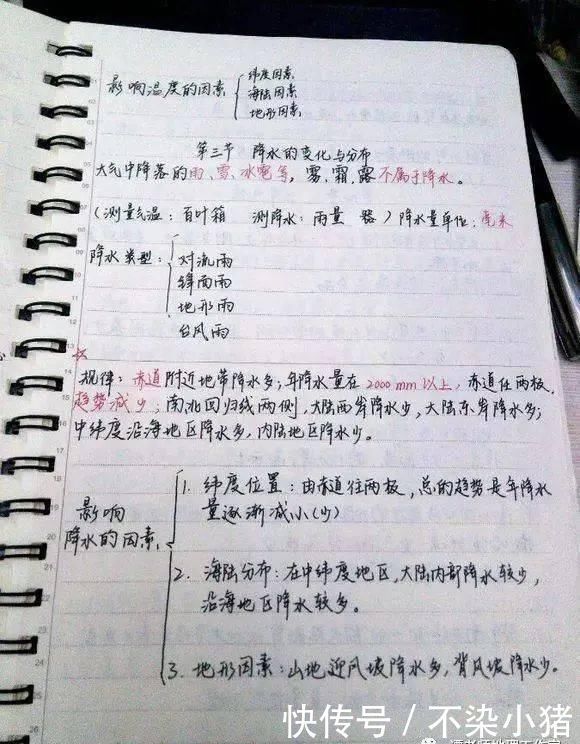 影响温度的因素 { 纬度因素
海陆因素
地形因素
第三节 降水的变化与分布
大气中降落的雨、雪、冰雹等，雾、霜、露不属于降水。
(测量气温：百叶箱 测降水：雨量 器) 降水量单位：毫米
降水类型： { 对流雨
锋面雨
地形雨
台风雨
☆
规律：赤道附近地带降水多；年降水量在2000mm以上，赤道往两极，
趋势减少；南北回归线两侧，大陆西岸降水少，大陆东岸降水多；
中纬度沿海地区降水多，内陆地区降水少。
影响
降水的因素 {
1. 纬度位置：由赤道往两极，总的趋势是年降水
量逐渐减小(少)
2. 海陆分布：在中纬度地区，大陆内部降水较少，
沿海地区降水较多。
3. 地形因素：山地迎风坡降水多，背风坡降水少。
快传号 / 不染小猪